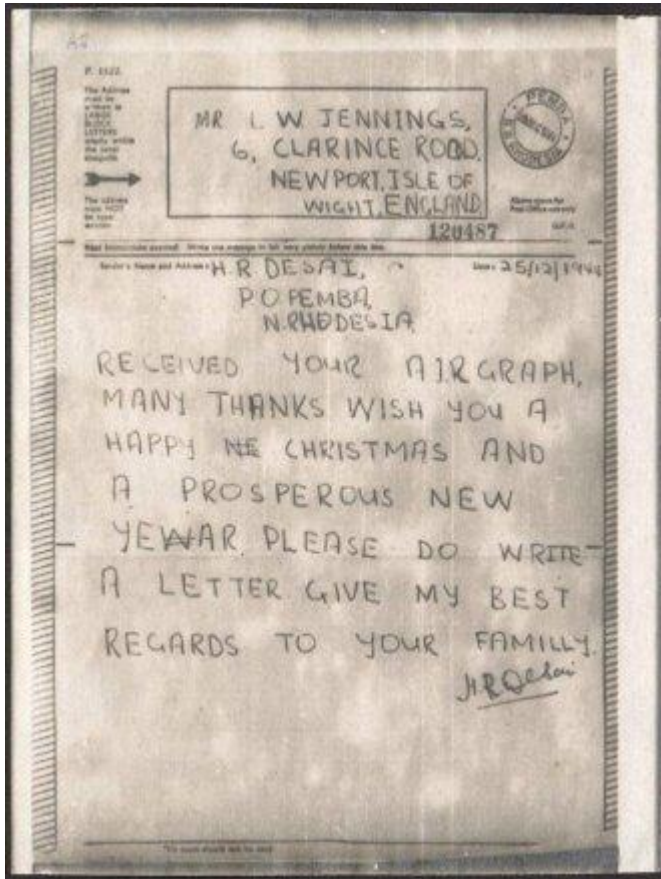 P. 1122
The Address
must be
written in
LARGE
BLOCK
LETTERS
wholly within
the panel
alongside
The address
must NOT
be type-
written
MR L. W JENNINGS,
6, CLARINCE ROAD.
NEWPORT, ISLE OF
WIGHT, ENGLAND
PEMBA
N. RHODESIA
120487
Write the message in very plainly below this line.
Sender's Name and Address:- H.R DESAI,
Date:- 25/12/194
P.O PEMBA,
N. RHODESIA
RECEIVED YOUR AIRGRAPH,
MANY THANKS WISH YOU A
HAPPY NE CHRISTMAS AND
A PROSPEROUS NEW
YEWAR. PLEASE DO WRITE
A LETTER GIVE MY BEST
REGARDS TO YOUR FAMILLY.
H.R Desai